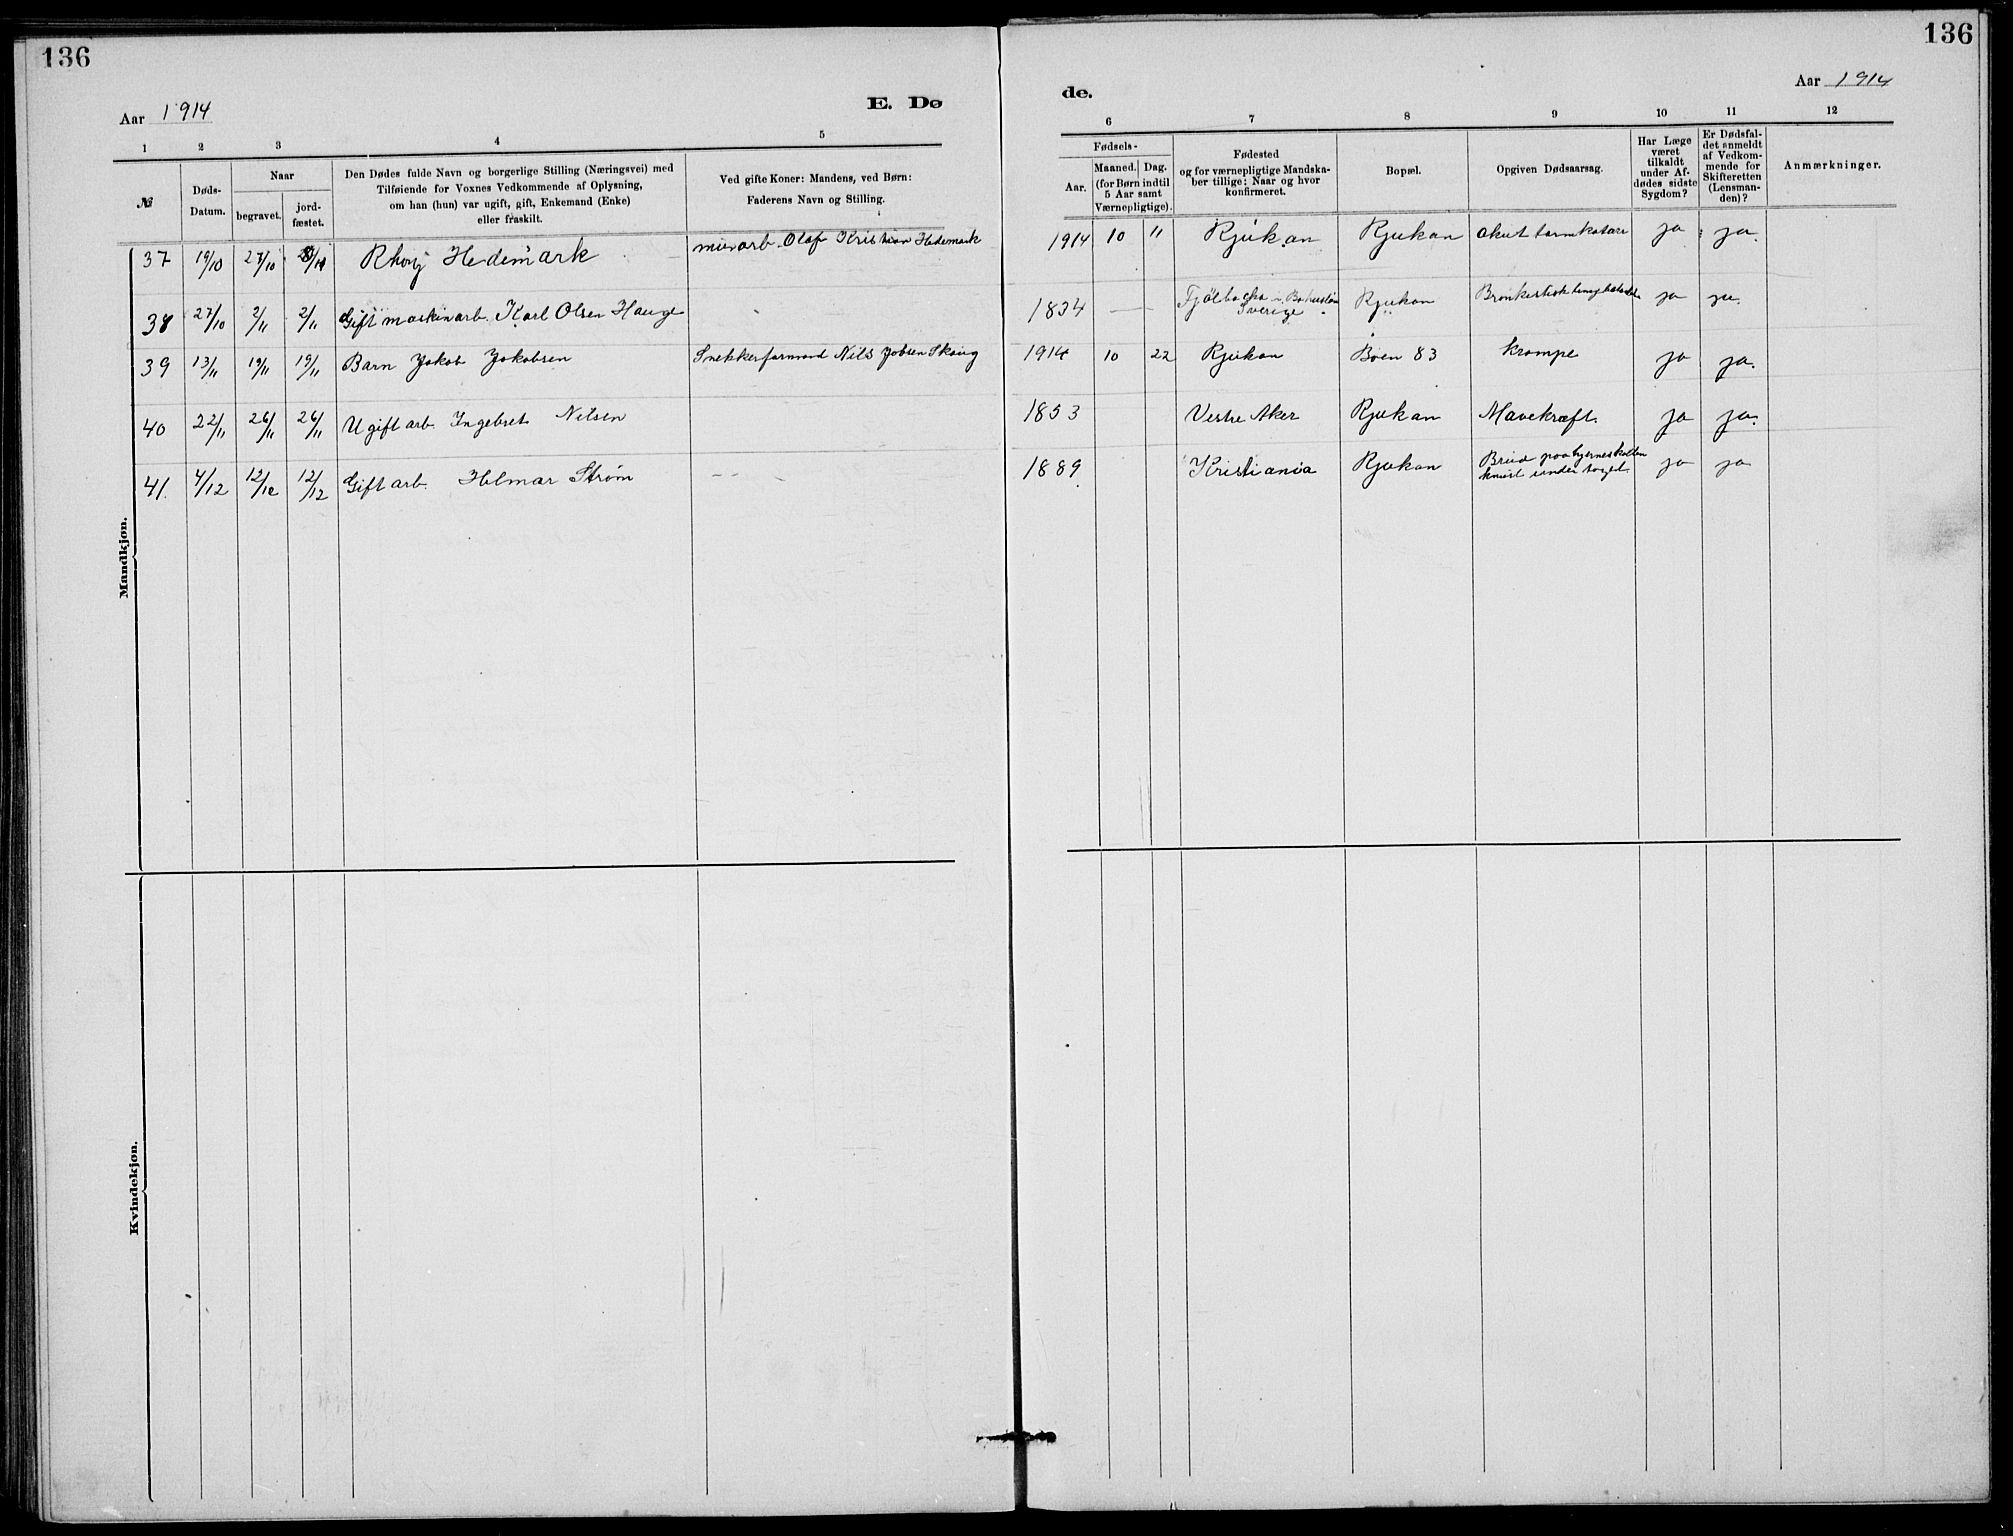 136
Aar 1914
E. Dø
1 2 3 4 5
№
Døds-
Datum.
Naar
begravet.
jord-
fæstet.
Den Dødes fulde Navn og borgerlige Stilling (Næringsvei) med
Tilføiende for Voxnes Vedkommende af Oplysning,
om han (hun) var ugift, gift, Enkemand (Enke)
eller fraskilt.
Ved gifte Koner: Mandens, ved Børn:
Faderens Navn og Stilling.
Mandkjøn.
37 19/10 27/10 Hedemark murarb. Olaf Kristian Hedemark
38 27/10 2/11 2/11 Gift maskinarb. Karl Olsen Hauge
39 13/11 19/11 19/11 Barn Jakob Jakobsen Snekkerformand Nils Jobsen Skaug
40 22/11 26/11 26/11 Ugift arb. Ingebret Nilsen
41. 4/12 12/12 12/12 Gift arb. Helmar Strøm — –
Kvindekjøn.
136
de.
Aar 1914
6 7 8 9 10 11 12
Fødsels-
Aar.
Maaned. Dag.
(for Børn indtil
5 Aar samt
Værnepligtige).
Fødested
og for værnepligtige Mandska-
ber tillige: Naar og hvor
konfirmeret.
Bopæl.
Opgiven Dødsaarsag.
Har Læge
været
tilkaldt
under Af-
dødes sidste
Sygdom?
Er Dødsfal-
det anmeldt
af Vedkom-
mende for
Skifteretten
(Lensman-
den)?
Anmærkninger.
1914 10 11 Rjukan Rjukan akut tarmkatarr ja ja.
1834 — Fjälbacka i Bohuslän
Sverige Rjukan ja ja.
1914 10 22 Rjukan Bøen 83 krampe ja ja.
1853 Vestre Aker Rjukan Mavekræft. ja ja.
1889. Kristiania Rjukan Brud paa hjerneskallen
knust under toget. ja ja